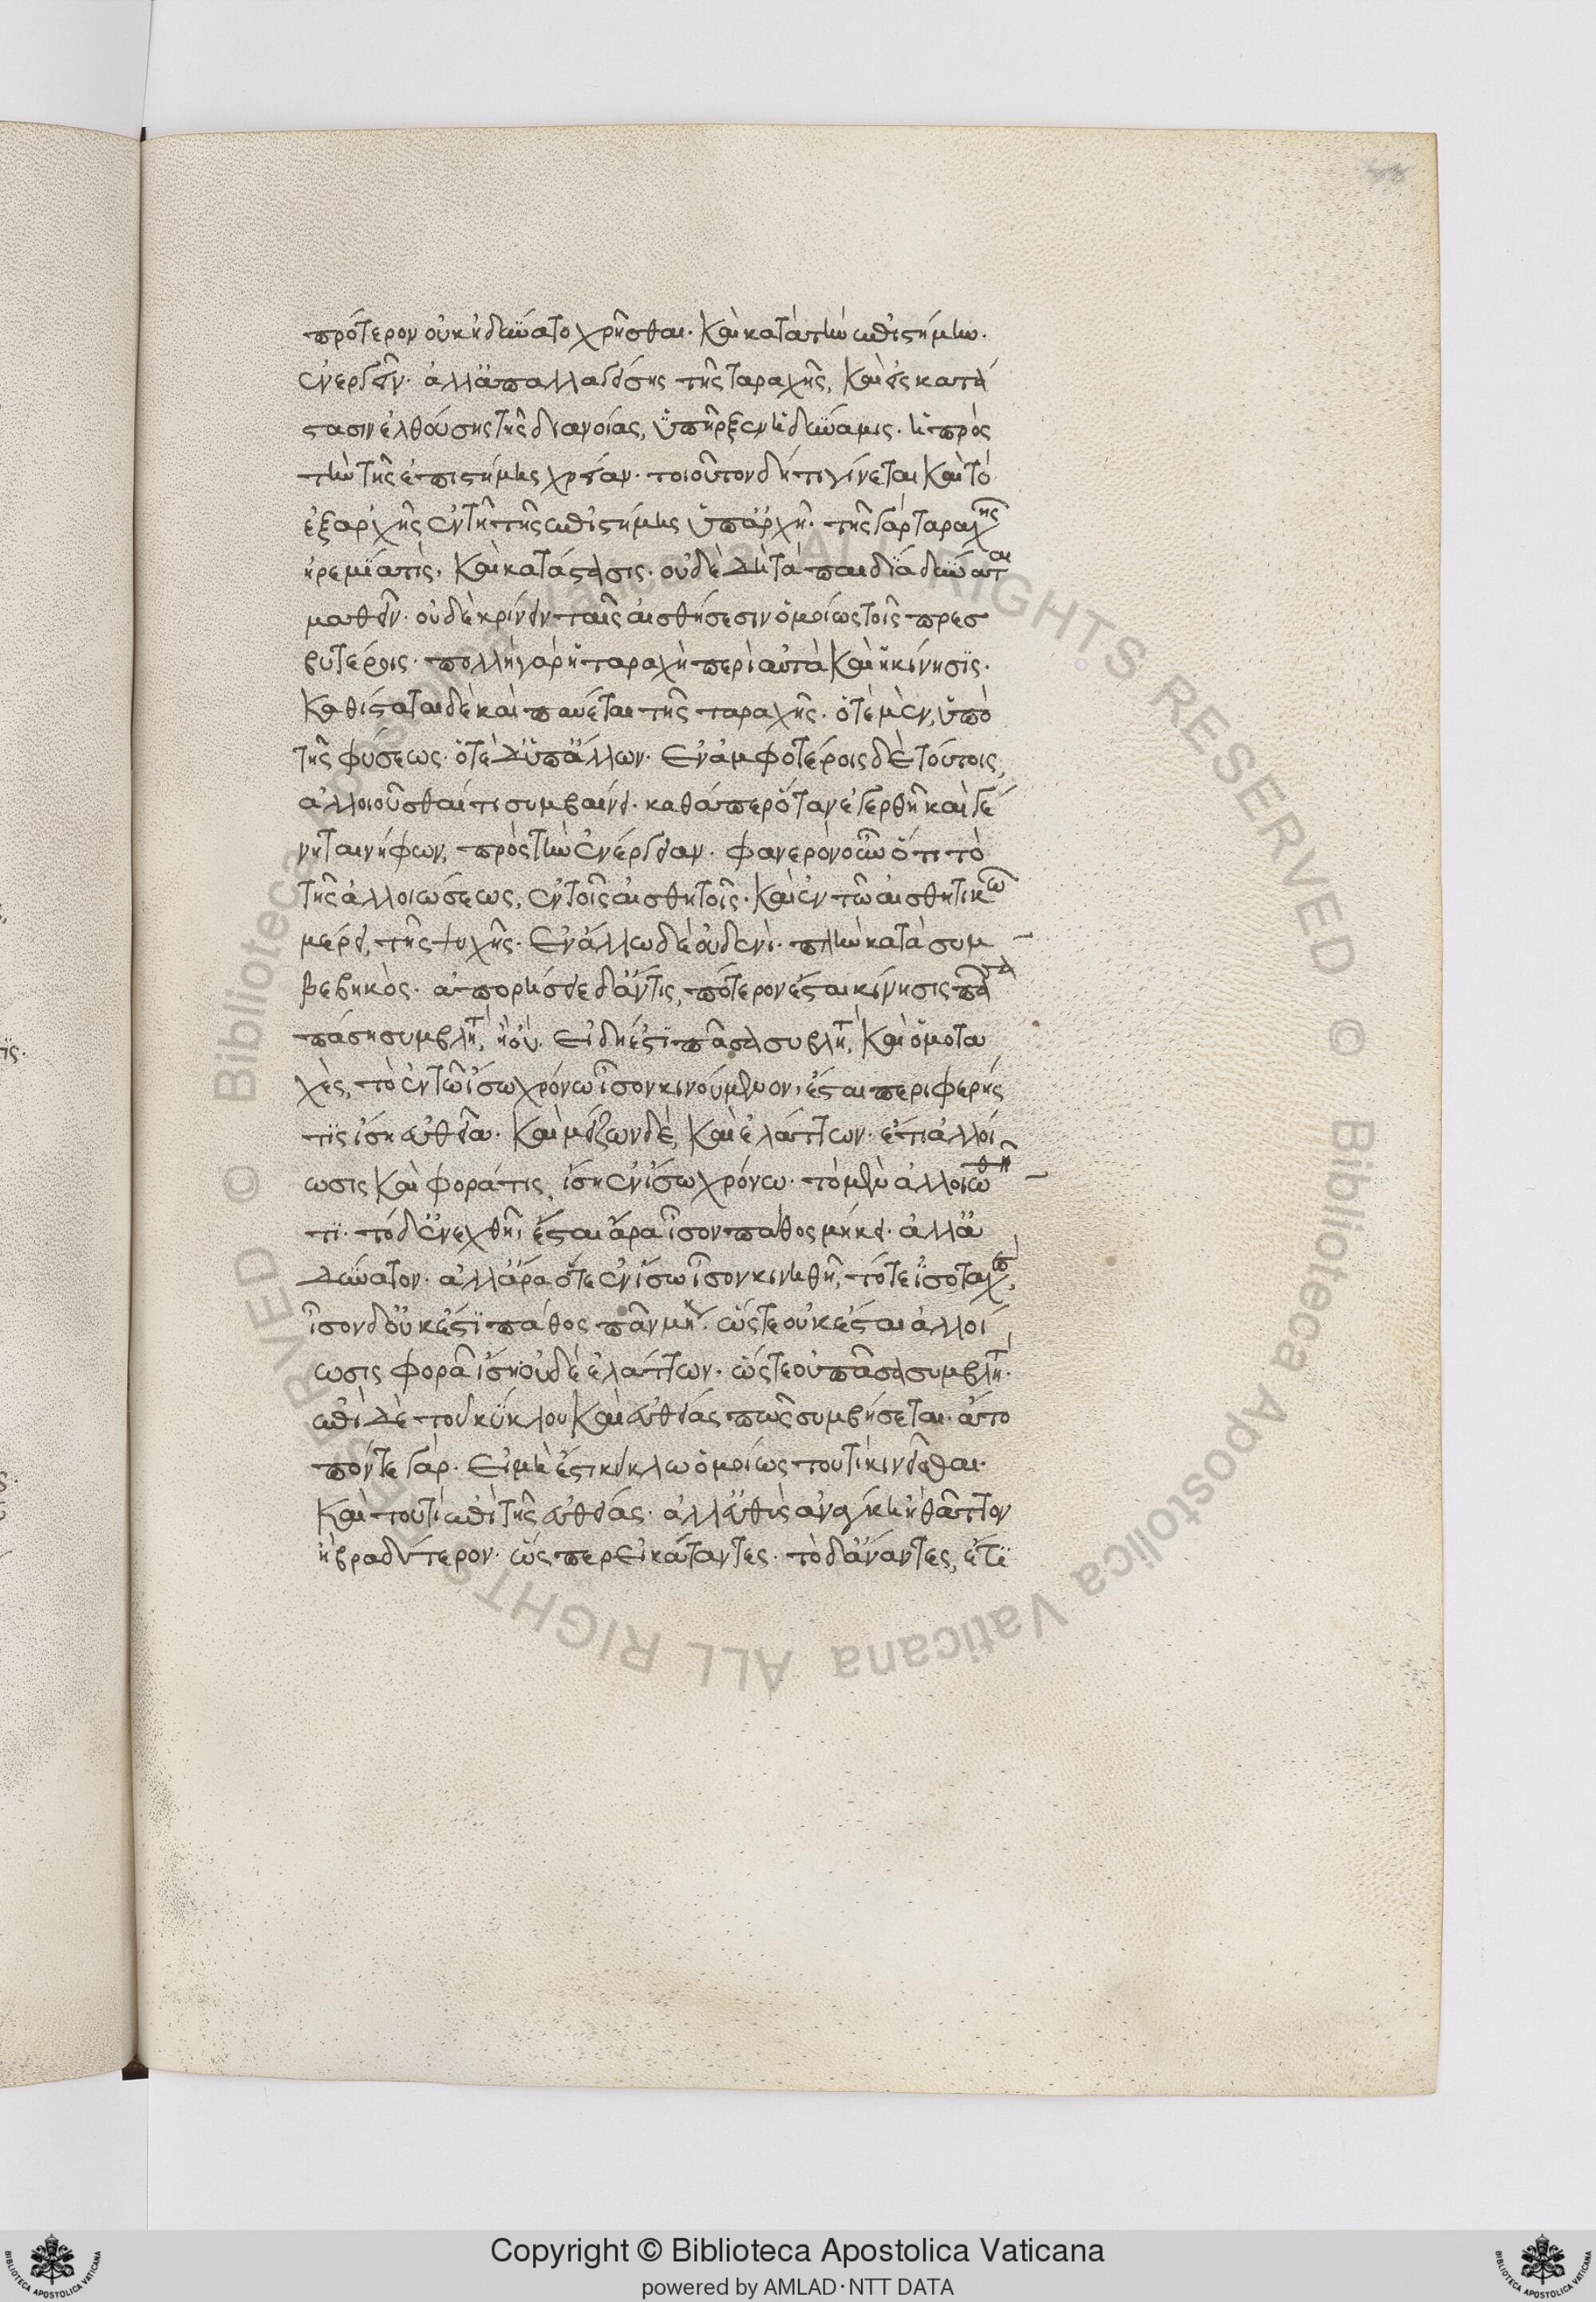 πρότερον οὐκ ἠδύνατο χρῆσθαι· καὶ κατὰ τὴν ἐπιστήμην·
ἐνεργεῖν· ἀλλ' ἀπαλλαγείσης τῆς ταραχῆς, καὶ εἰς κατά
στασιν ἐλθούσης τῆς διανοίας, ὑπῆρξεν ἡ δύναμις· ἡ πρὸς
τὴν τῆς ἐπιστήμης χρείαν· τοιοῦτον δή τι γίνεται καὶ τὸ
ἐξαρχῆς ἐν τῇ τῆς ἐπιστήμης ὑπάρχῃ· τῆς γὰρ ταραχῆς
ἠρεμία τὶς· καὶ κατάστασις· οὐδὲ δὴ τὰ παιδία δύναται
μαθεῖν· οὐδὲ κρίνειν ταῖς αἰσθήσεσιν ὁμοίως τοῖς πρεσ
βυτέροις· πολλὴ γὰρ ἡ ταραχὴ περὶ αὐτὰ καὶ ἡ κίνησις·
καθίσταται δὲ καὶ παύεται τῆς ταραχῆς· ὁτὲ μὲν, ὑπὸ
τῆς φύσεως· ὁτὲ δ' ὑπ' ἄλλων· ἐν ἀμφοτέροις δὲ τούτοις,
ἀλλοιοῦσθαί τι συμβαίνει· καθάπερ ὅταν ἐγερθῇ καὶ γέ
νηται νήφων, πρὸς τὴν ἐνέργειαν· φανερὸν οὖν ὅτι τὸ
τῆς ἀλλοιώσεως, ἐν τοῖς αἰσθητοῖς· καὶ ἐν τῶ αἰσθητικῶ
μέρει, τῆς ψυχῆς· ἐν ἄλλω δὲ οὐδενί· πλὴν κατὰ συμ
βεβηκὸς· ἀπορήσειε δ' ἄν τις, πότερον ἐσται κίνησις πᾶσα
πάση συμβλητὴ, ἢ οὐ· εἰ δή ἐστι πᾶσα συβλητὴ, καὶ ὁμοτα
χὲς, τὸ ἐν τῶ ἴσω χρόνω ἴσον κινούμενον, ἔσται περιφερής
τις ἴση εὐθεῖα· καὶ μείζων δὲ, καὶ ἐλάττων· ἔτι ἀλλοί
ωσις καὶ φορά τις, ἴση ἐν ἴσω χρόνω· τὸ μὲν ἀλλοιωθῇ
τι· τὸ δ' ἐνεχθῇ, ἔσται ἄρα ἴσον παθος μήκει· ἀλλ' ἀ
δύνατον· ἀλλ' ἄρα ὅτε ἐν ἴσω ἴσον κινηθῇ, τότε ἰσοταχὲς,
ἴσον δ' οὐκ ἔστι πάθος πᾶν μήκει· ὥστε οὐκ ἔσται ἀλλοί
ωσις φορᾶ ἴση οὐδὲ ἐλάττων· ὥστε οὐ πᾶσα συμβλητὴ·
ἐπὶ δὲ τοῦ κύκλου καὶ εὐθείας πῶς συμβήσεται· ἄτο
πόν τε γὰρ· εἰ μὴ ἔστι κύκλω ὁμοίως τουτὶ κινεῖσθαι·
καὶ τουτὶ ἐπὶ τῆς εὐθείας· ἀλλ' εὐθὺς ἀνάγκη ἢ θᾶττον
ἢ βραδύτερον· ὥσπερ εἰ κάταντες· τὸ δ' ἄναντες, ἔτι